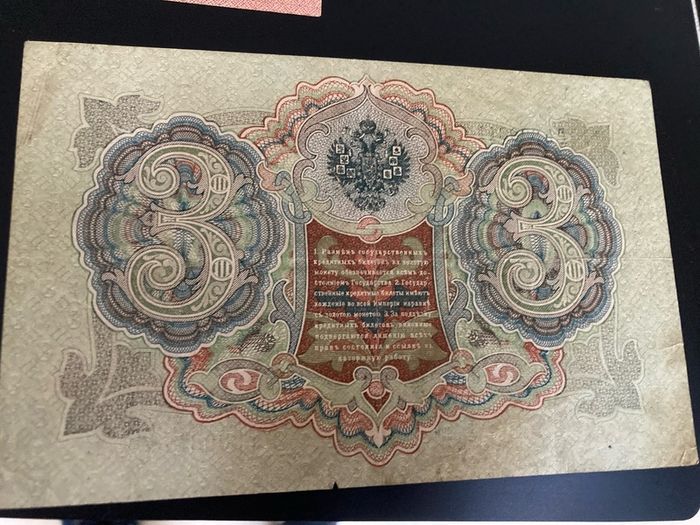 3
3
1. Размѣнъ государственныхъ
кредитныхъ билетовъ на золотую
монету обезпечивается всѣмъ до-
стояніемъ Государства. 2. Государ-
ственные кредитные билеты имѣютъ
хожденіе во всей Имперіи наравнѣ
съ золотою монетою. 3. За поддѣлку
кредитныхъ билетовъ виновные
подвергаются лишенію всѣхъ
правъ состоянія и ссылкѣ въ
каторжную работу.